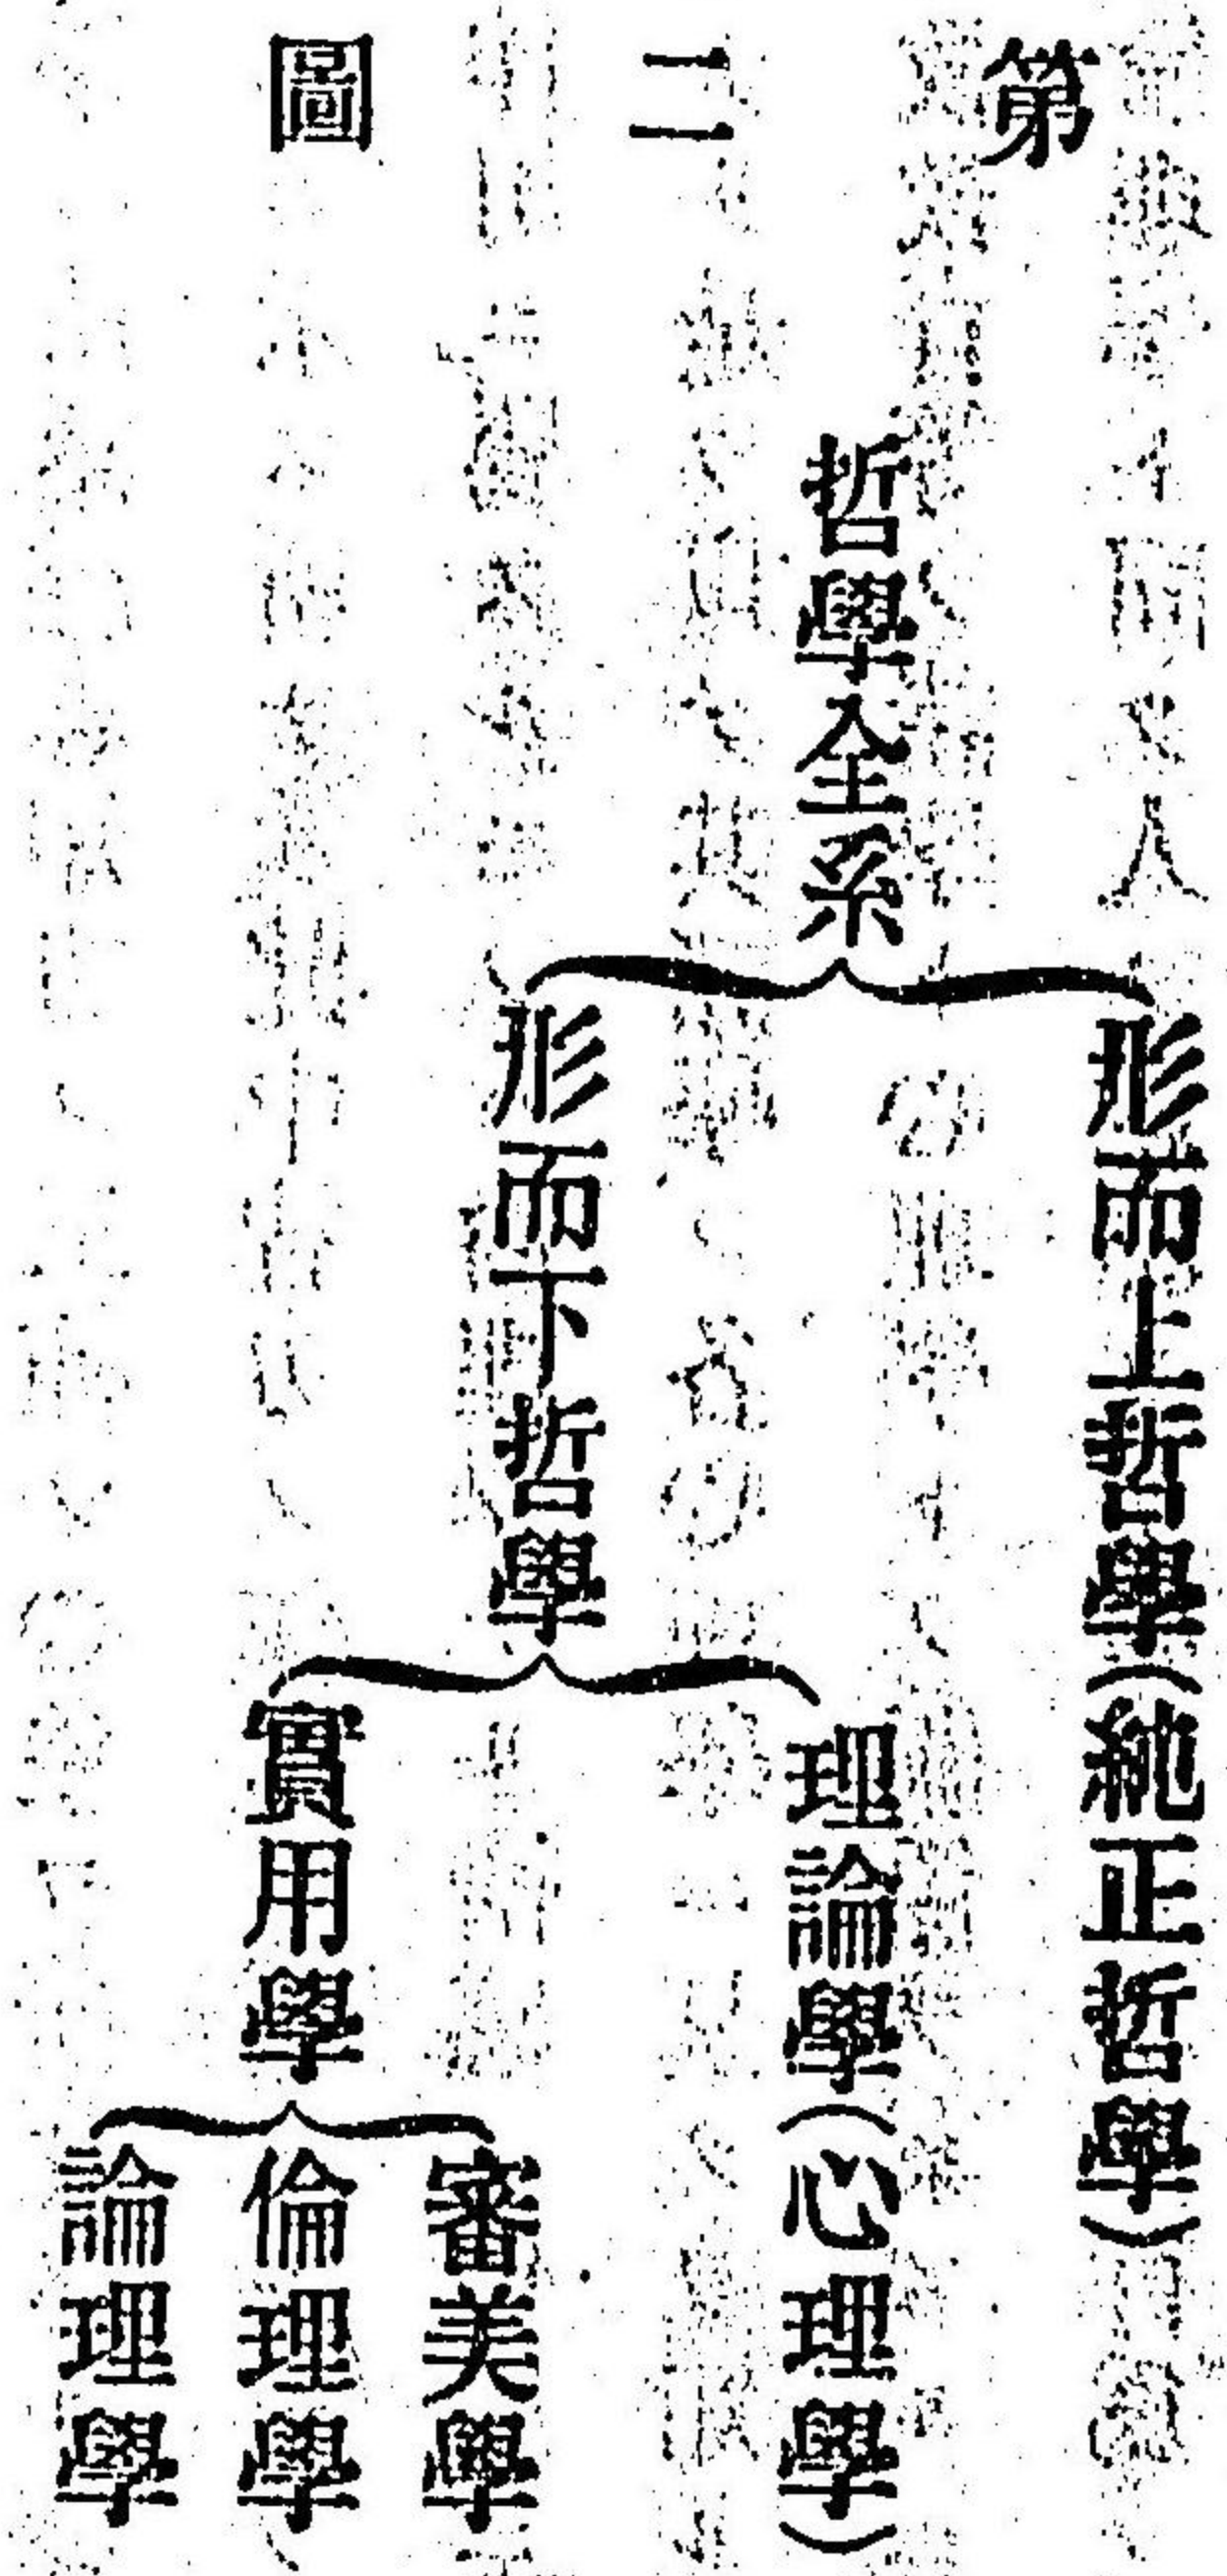 第二圖
哲學全系
形而上哲學(純正哲學)
形而下哲學
理論學(心理學)
實用學
審美學
倫理學
論理學